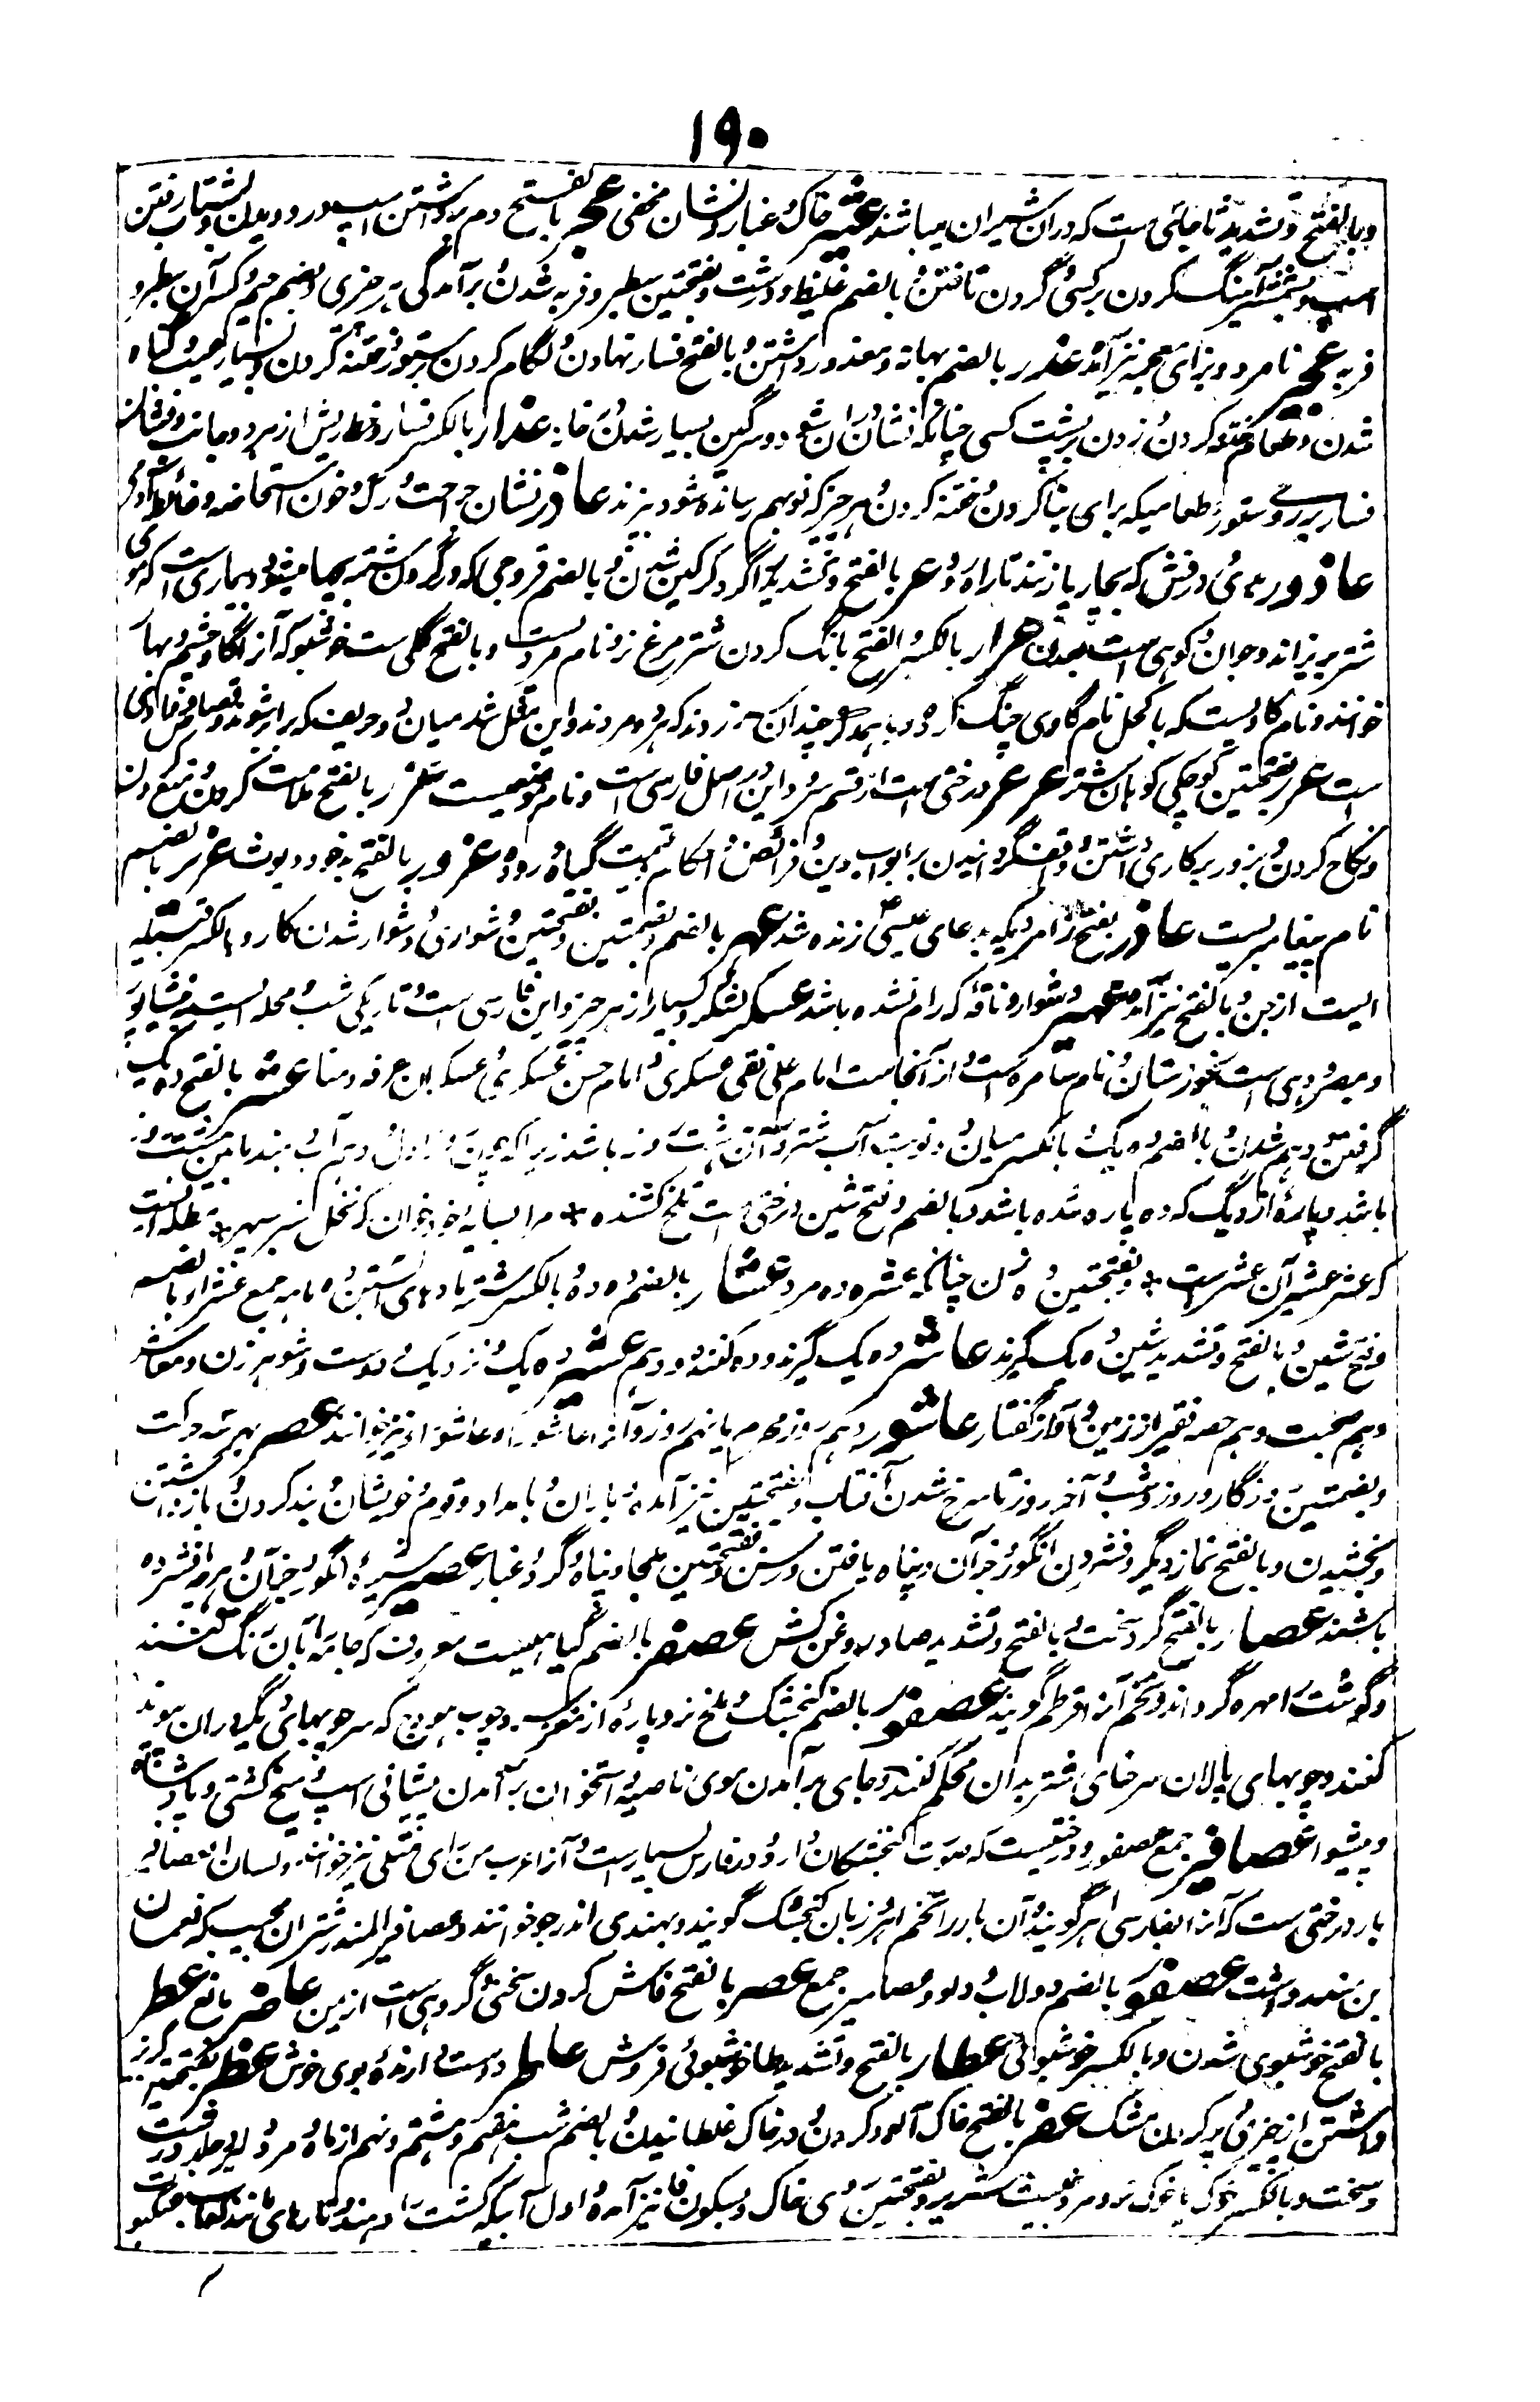 ۱۹۰
وبالفتح وتشدید ثا جائی ست که دران شیران میباشند عثیر خاک و غبار و نشان مخفی عجر بالفتح دم برداشتن اسپ در دویدن و شتاب رفتن
اسپ و بشمشیر آهنگ کردن بر کسی و گردن تافتن و بالضم غلیظ و درشت و بفتحتین سطبر و فربه شدن و برآمدگی هر چیزی و بضم جیم و کسر آن سطبر و
فربه عجیر نامرد و بزای معجمه نیز آمده عذر بالضم بهانه و معذور داشتن و بالفتح فسار نهادن و لگام کردن ستور و ختنه کردن و بسیار عیب و گناه
شدن و طعام ختنه کردن و زدن بر پشت کسی چنانکه نشان زان شود و سرگین بسیار شدن خانه عذار بالکسر فسار و خط ریش از هر دو جانب و نشان
فسار بر روی ستور و طعامیکه برای بنا کردن و ختنه کردن و هر چیز که نو بهم رسانده شود بپزند عاذر نشان جراحت و رگ خون استحاضه و غائط آدمی
عاذور داغی و درفش که بچارپا زنند تا راه رود عر بالفتح و تشدید را گر و گرگین شدن و بالضم قروحی که در گردن شتر پیدا میشود و بیماری است که موی
شتر بریزاند و جوان و کوهی ست بعدن عرار بالکسر و الفتح بانگ کردن شترمرغ نر و نام مردیست و بالفتح گلی ست خوشبو که آنرا گاو چشم و بهار
خوانند و نام گاویست که با کحل نام گاوی جنگ کرده و با یکدیگر چندان سر زدند که هر دو مردند و این مثل شد میان دو حریف که برابر شوند
است عرر بفتحتین کوچکی کوهان شتر عرعر درختی ست از قسم سرو و این در اصل فارسی است و نام موضعیست عزر بالفتح ملامت کردن و منع کردن
و نکاح کردن و بزور بر کاری داشتن و واقف گردانیدن بر ابواب دین و فرائض و احکام و قیمت گیاه دروده عزور بالفتح بدخو و دیوث عزیر بالضم
نام پیغامبریست عاذر بفتح ذا مردیکه بدعای عیسی ع زنده شد عسر بالضم و بضمتین و بفتحتین دشواری و دشوار شدن کار و بالکسر قبیله
ایست از جن و بالفتح نیز آمده عسیر دشوار و ناقه که رام نشده باشد عسکر لشکر و بسیار از هر چیز و این فارسی ست و تاریکی شب و محله ایست به نیشاپور
و بمصر و دهی است بخوزستان و نام سامره است و از آنجاست امام علی نقی عسکری و امام حسن عسکری و عسکران عرفه و منا عشر بالفتح ده یک
گرفتن و دهم شدن و بالضم ده یک و بالکسر میان دو نوبت آب شتر و آن هشت روز باشد زیرا که چون روز اول و دهم آب بیند مابین هشت روز
باشد و پاره از دیگ که ده پاره شده باشد و بالضم و فتح شین درختی ست تلخ کشنده * مرا بسایه خود خوان که نخل سبز سپهر * بظل تست
که عشر عشیر آن عشر است * و بفتحتین ده زن چنانکه عشره ده مرد عشار بالضم ده ده و بالکسر شترهای ماده آبستن ده ماهه جمع عشراء بالضم
و فتح شین و بالفتح و تشدید شین ده یک گیرنده عاشر ده یک گیرنده و ده کننده و دهم عشیر ده یک و نزدیک و دوست و شوهر زن و معاشر
و هم صحبت و دهم حصه قفیز از زمین و آواز کفتار عاشور دهم روز محرم یا نهم روز و آنرا عاشورا و عاشوراء نیز خوانند عصر بهر سه حرکت
و بضمتین روزگار و روز و شب و آخر روز تا سرخ شدن آفتاب و بفتحتین نیز آمده و باران و بامداد و قوم و خویشان و بند کردن و بازداشتن
و بخشیدن و بالفتح نماز دیگر و فشردن انگور و جز آن و پناه یافتن و رستن و بفتحتین ملجا و پناه و گرد و غبار عصیر شیره انگور و جز آن و هر چه افشرده
باشند عصار بالفتح گرد سخت و بالفتح و تشدید صاد روغن کش عصفر بالضم گیاهیست معروف که جامه بآن رنگ کنند
و گوشت را مهره گرداند و تخم آنرا قرطم گویند عصفور بالضم گنجشک و ملخ نر و پاره از مغز سر و چوب هودج که سر چوبهای دیگر دران پیوند
کنند و چوبهای پالان که سر خنای شتر بدان محکم کنند و جای برآمدن موی ناصیه و استخوان برآمدن پیشانی اسپ و میخ کشتی و پادشاه
و پیشوا عصافیر جمع عصفور و درختیست که صورت گنجشکان دارد و در فارس بسیار ست و آنرا عرب من رای مثلی نیز خوانند و لسان العصافیر
بار درختی ست که آنرا بفارسی اهر گویند و آن بار را تخم اهر و زبان گنجشک گویند و بهندی اندرجو خوانند و عصافیر المنذر شتران نجیب که نعمان
بن منذر داشت عصمور بالضم دولاب و دلو و عصامیر جمع عضر بالفتح فاش کردن سخن و گروهی ست از یمن عاضر مانع عطر
بالفتح خوشبوی شدن و بالکسر خوشبوئی عطار بالفتح و تشدید طا خوشبوئی فروش عاطر دوست دارنده بوی خوش عظر بفتحتین کریز
داشتن از چیزی و پر کردن مشک عفر بالفتح خاک آلود کردن و در خاک غلطانیدن و بالضم شب هفتم و هشتم و نهم از ماه و مرد دلیر و جلد و درشت
و سخت و بالکسر خوک یا خوک نر و مرد خبیث شریر و بفتحتین روی خاک و بسکون فا نیز آمده و اول آبیکه کشت را دهند و تارهای مانند لعاب عنکبوت